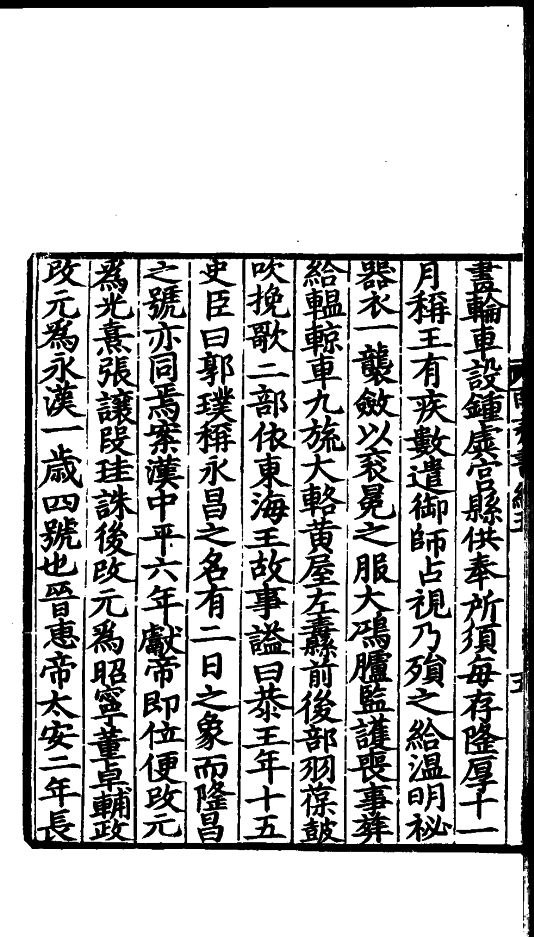 畫輪車設鍾虡宮縣供奉所須每存隆厚十一
月稱王有疾數遣御師占視乃殞之給温明祕
器衣一襲斂以衮冕之服大鴻臚監護喪事葬
給轀輬車九旒大輅黄屋左纛縣前後部羽葆鼓
吹挽歌二部依東海王故事謚曰恭王年十五
史臣曰郭璞稱永昌之名有二日之象而隆昌
之號亦同焉案漢中平六年獻帝即位便改元
爲光熹張讓段珪誅後改元爲昭寧董卓輔政
改元爲永漢一歲四號也晉惠帝太安二年長